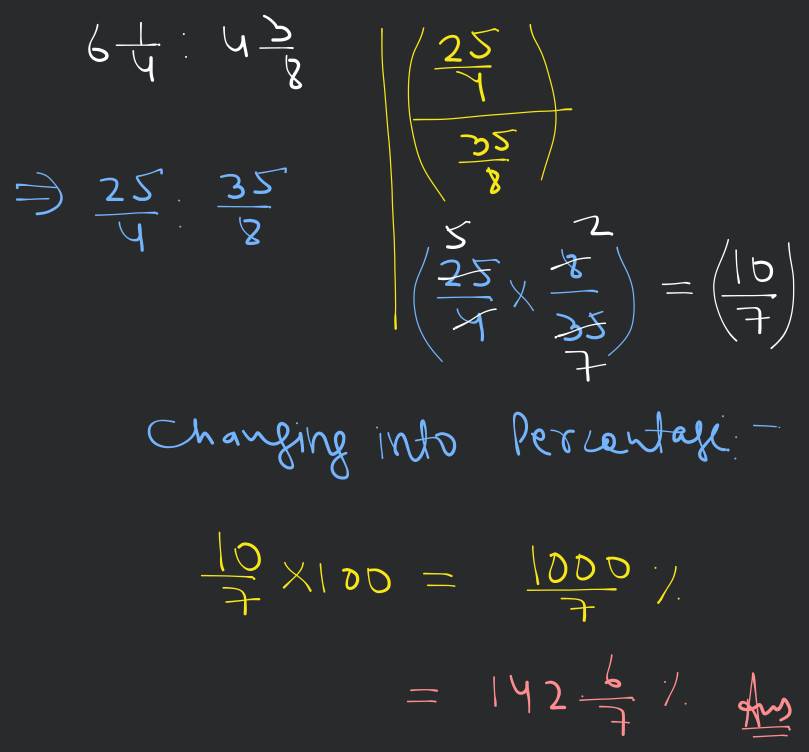 6 1/4 : 4 3/8
⇒ 25/4 : 35/8
(25/4) / (35/8)
5 2
(25/4 × 8/35) = (10/7)
7
Changing into Percentage:-
10/7 × 100 = 1000/7 %
= 142 6/7 % Ans